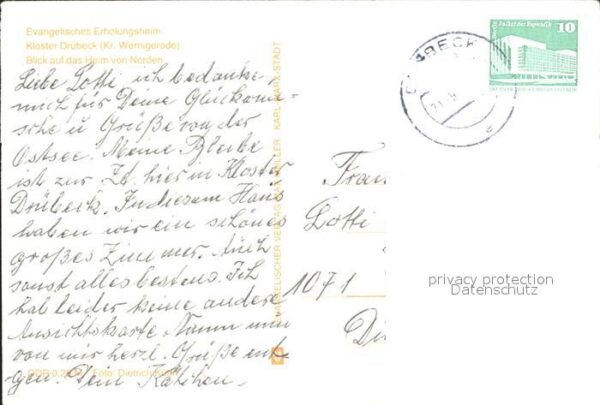 Evangelisches Erholungsheim
Kloster Drübeck (Kr. Wernigerode)
Blick auf das Heim von Norden
Liebe Lotti ich bedanke
mich für Deine Glückwün-
sche u Grüße von der
Ostsee. Meine Bleibe
ist zur Zt. hier in Kloster
Drübeck. In diesem Haus
haben wir ein schönes
großes Zimmer. Auch
sonst alles bestens. Ich
hab leider keine andere
Ansichtskarte. Nimm nun
von mir herzl. Grüße ent-
gegen. Dein Käthchen.
Foto: Dietrich
EVANGELISCHER VERLAG MAX MÜLLER KARL-MARX-STADT
10
Frau
Lotti
1071
privacy protection
Datenschutz